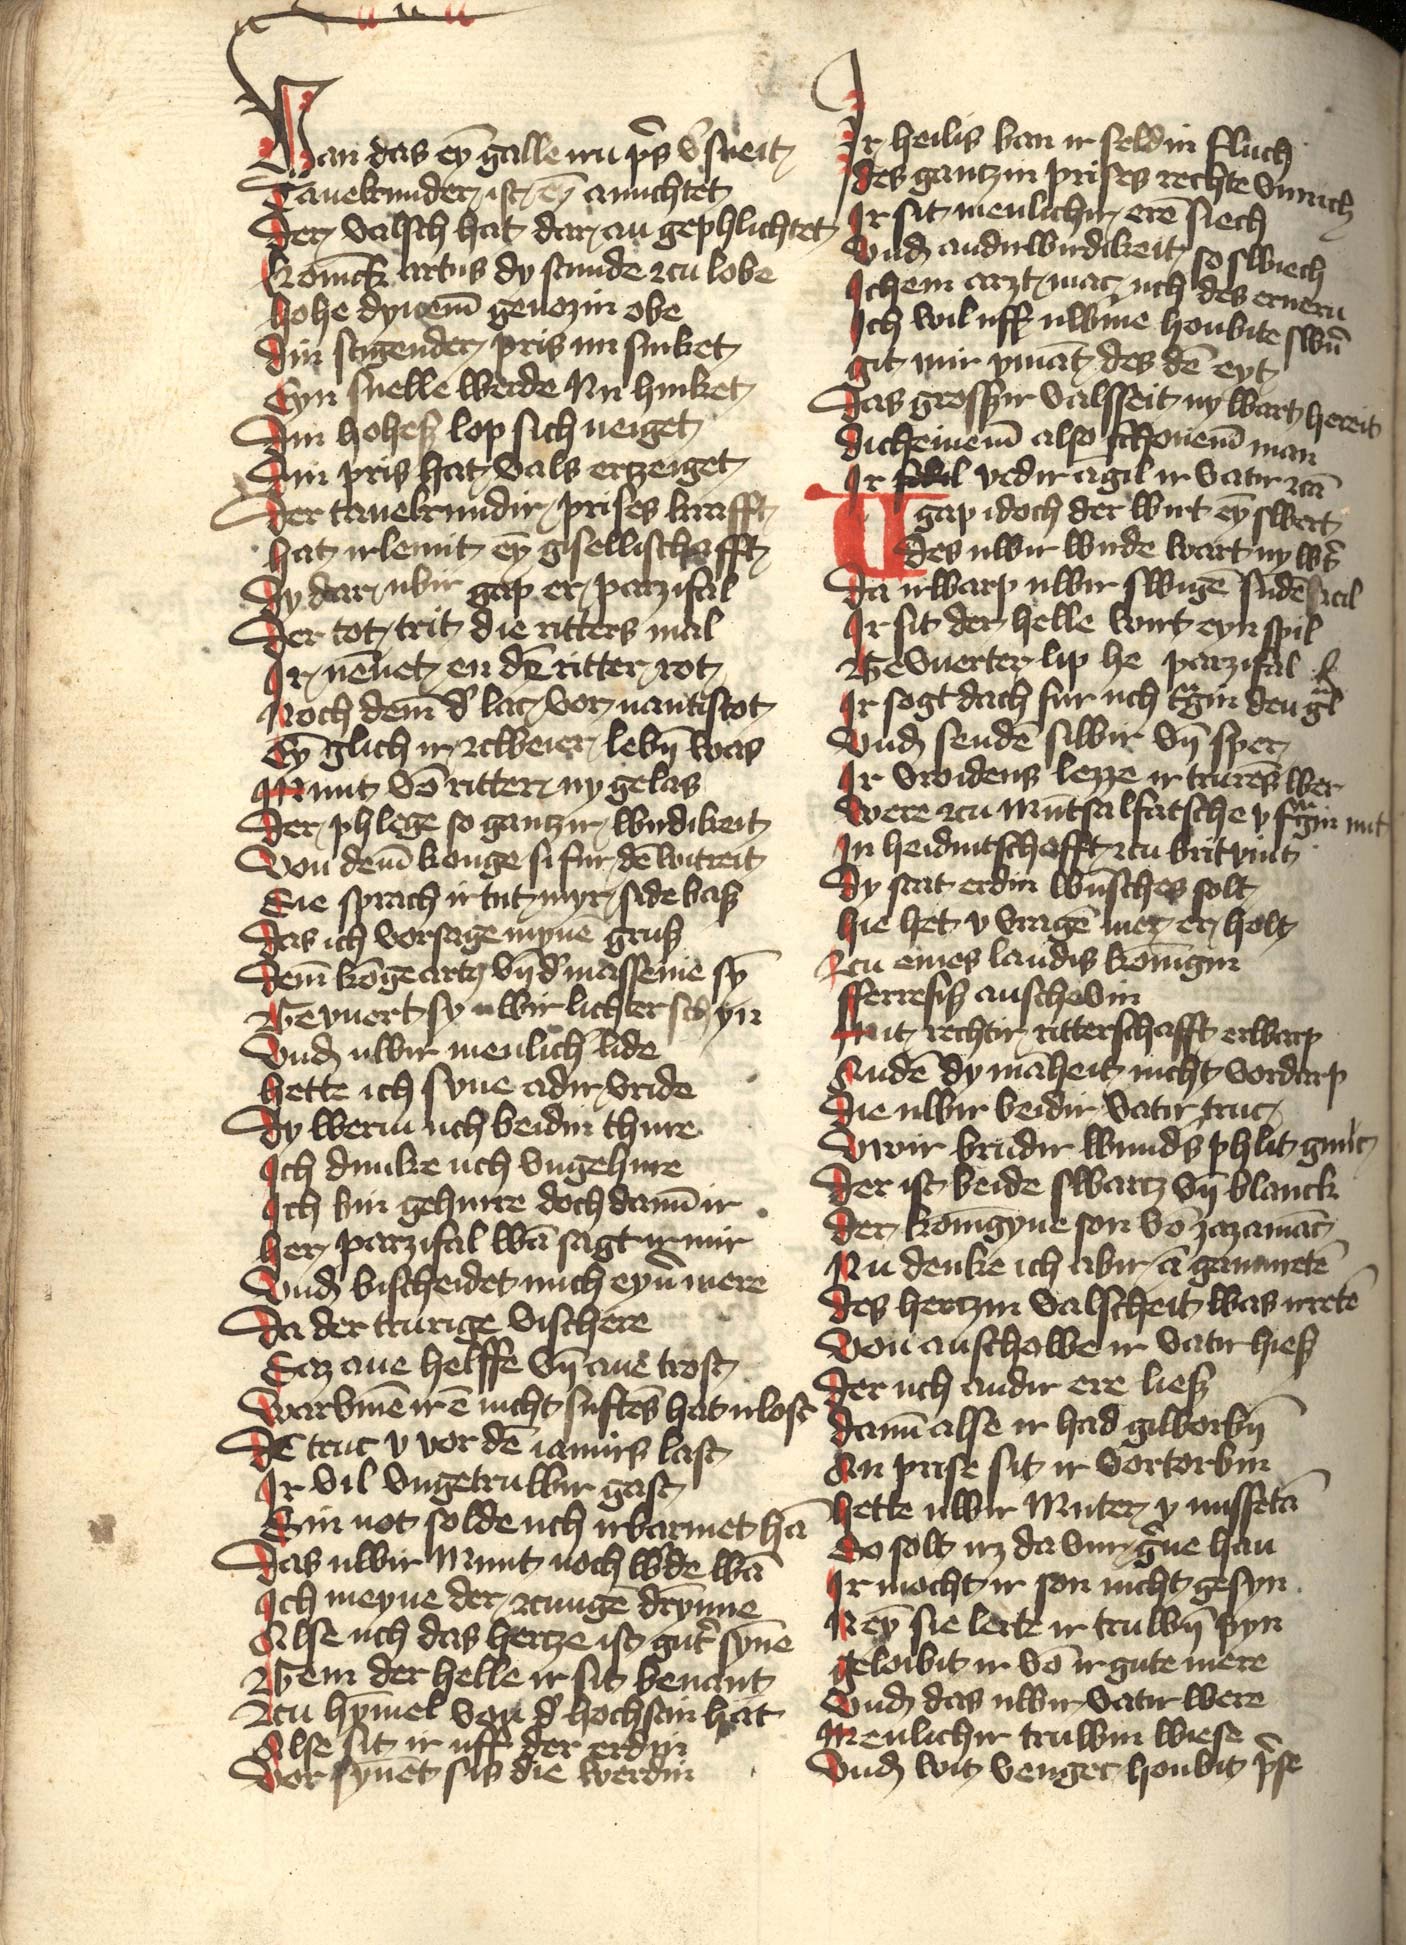 Wan das eȳ galle iru p̄s v̄sneit
Tauelrunder ist eȳ anuchtet
Der valsch hat dar an gephlichtet
Konīck artus dy stunde zcu lobe
hohe dynem̄ genozin obe
Din stigender pris nu sinket
Eyn snelle werde Nu hinket
Din hohes lop sich neiget
Din pris hat vals ertzeiget
Der tauelrundir prises krafft
hat irlemit eȳ gisellischafft
Dy dar ubir gap er parzifal
Der tot trit die ritters mal
Ir nēnet en dē ritter rot
Noch dem̄ d' lac vor nantistot
Eȳ glich ir zcweier lebn̄ was
Munt vō ritter ny gelas
Der phlege so gantzir wirdikeit
Von dem̄ konge si fur dē witreit
Sie sprach ir tut myr side bas
Das ich vorsage mynē grus
Dem̄ kōge artꝰ vn̄ d' massenie sȳ
Gevnert sy uwir lichter sch yn
Vnd uwir menlich̄ lide
hette ich syne adir vride
Dy wern uch beidin thure
Ich dunke uch vngehure
Ich bin gehurre doch dann̄ ir
her parzifal wā sagt ir mir
Vnd bischeidet mich eyn' mere
Da der trurige vischere
Saz ane helffe vn̄ ane trost
Warvmē ir ē nicht suftēs hat irlost
Er truc v vor dē iamirs last
Ir vil vngetruwir gast
Sin not solde uch irbarmet hā
Das uwir Munt noch w'de wā
Ich meyne der zcungē drȳnne
Alse uch das hertze ist gut' synē
Gein der helle ir sit benant
Zcu hȳmel von d' hochstin hant
Alse sit ir uff der erdin
Vor synēt sus die werdin
Ir heilis ban ir seldin fluch
Des gantzin prises rechte vnruch
Ir sit menlichir erē siech
Vnd an dir wirdikeit so swiech
Ichein arzt mac uch des ernern
Ich wil uff uwīne houbite swn̄
git mir ymāt des dē eyt
Das grosser valsseit ny wart bereit
Dicheinem̄ also schonem̄ man
Ir vedir āgil ir vatir zcā
U gap idoch der wirt eȳ swert
Des uwir wirde wart ny w't
Da irwarp uwir swigē sundē zcil
Ir sit der helle wirt eyn spil
Gevnerter lip he parzifal
Ir sogt dach fur uch tgin den gl
Vnd sendē silbir vn̄ sper
Ir vroidens lezze ir trurēs wer
Were zcu Mūtsalfatsche v frgin mit
In heidintschafft zcu britvint
Dy stat erdin wūsches solt
hie het v vragē mer er holt
Zcu eines landis konīgin
fferrefis anschevin
Mit rechtir ritterschafft erwarp
An dē dy māheit nicht vordarp
Die uwir beidir vatir truc
Vwir brudir wundˢ phlit gnuc
Der ist beide swartz vn̄ blanck
Der konīgyne son vō zazamāc
Nu denke ich abir ā gammretē
Des hertzin valscheit was irretē
Von anschowe ir vatir hies
Der uch andir ere lies
Dann̄ alse ir had giworbn̄
An prise sit ir vortorbin
hette uwir Muter y missetā
So solt irz da vur gne han
Ir mocht ir son nicht gesyn
Neȳ sie lerte ir truwn̄ pyn
geloibit ir vō ir gute mere
Vnd das uwir vatir were
Menlichir truwin wiese
Vnd wit venger houbit p̄se